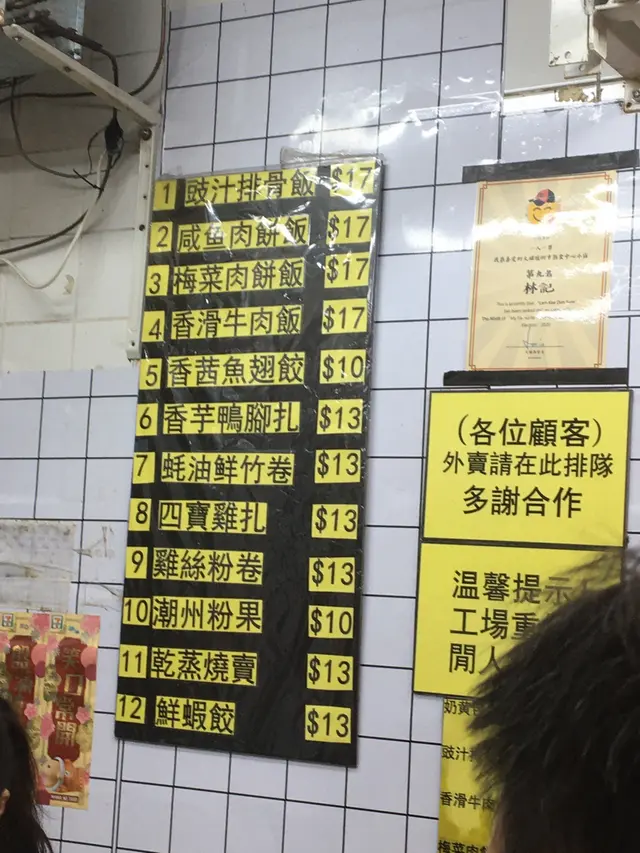 1 豉汁排骨飯 $17
2 咸鱼肉餅飯 $17
3 梅菜肉餅飯 $17
4 香滑牛肉飯 $17
5 香茜魚翅餃 $10
6 香芋鴨腳扎 $13
7 蚝油鲜竹卷 $13
8 四寶雞扎 $13
9 雞絲粉卷 $13
10 潮州粉果 $10
11 乾蒸燒賣 $13
12 鮮蝦餃 $13
第九名
林記
(各位顧客)
外賣請在此排隊
多謝合作
温馨提示
工場重
閒人
奶黄
豉汁
香滑牛肉
梅菜肉
笑口常開